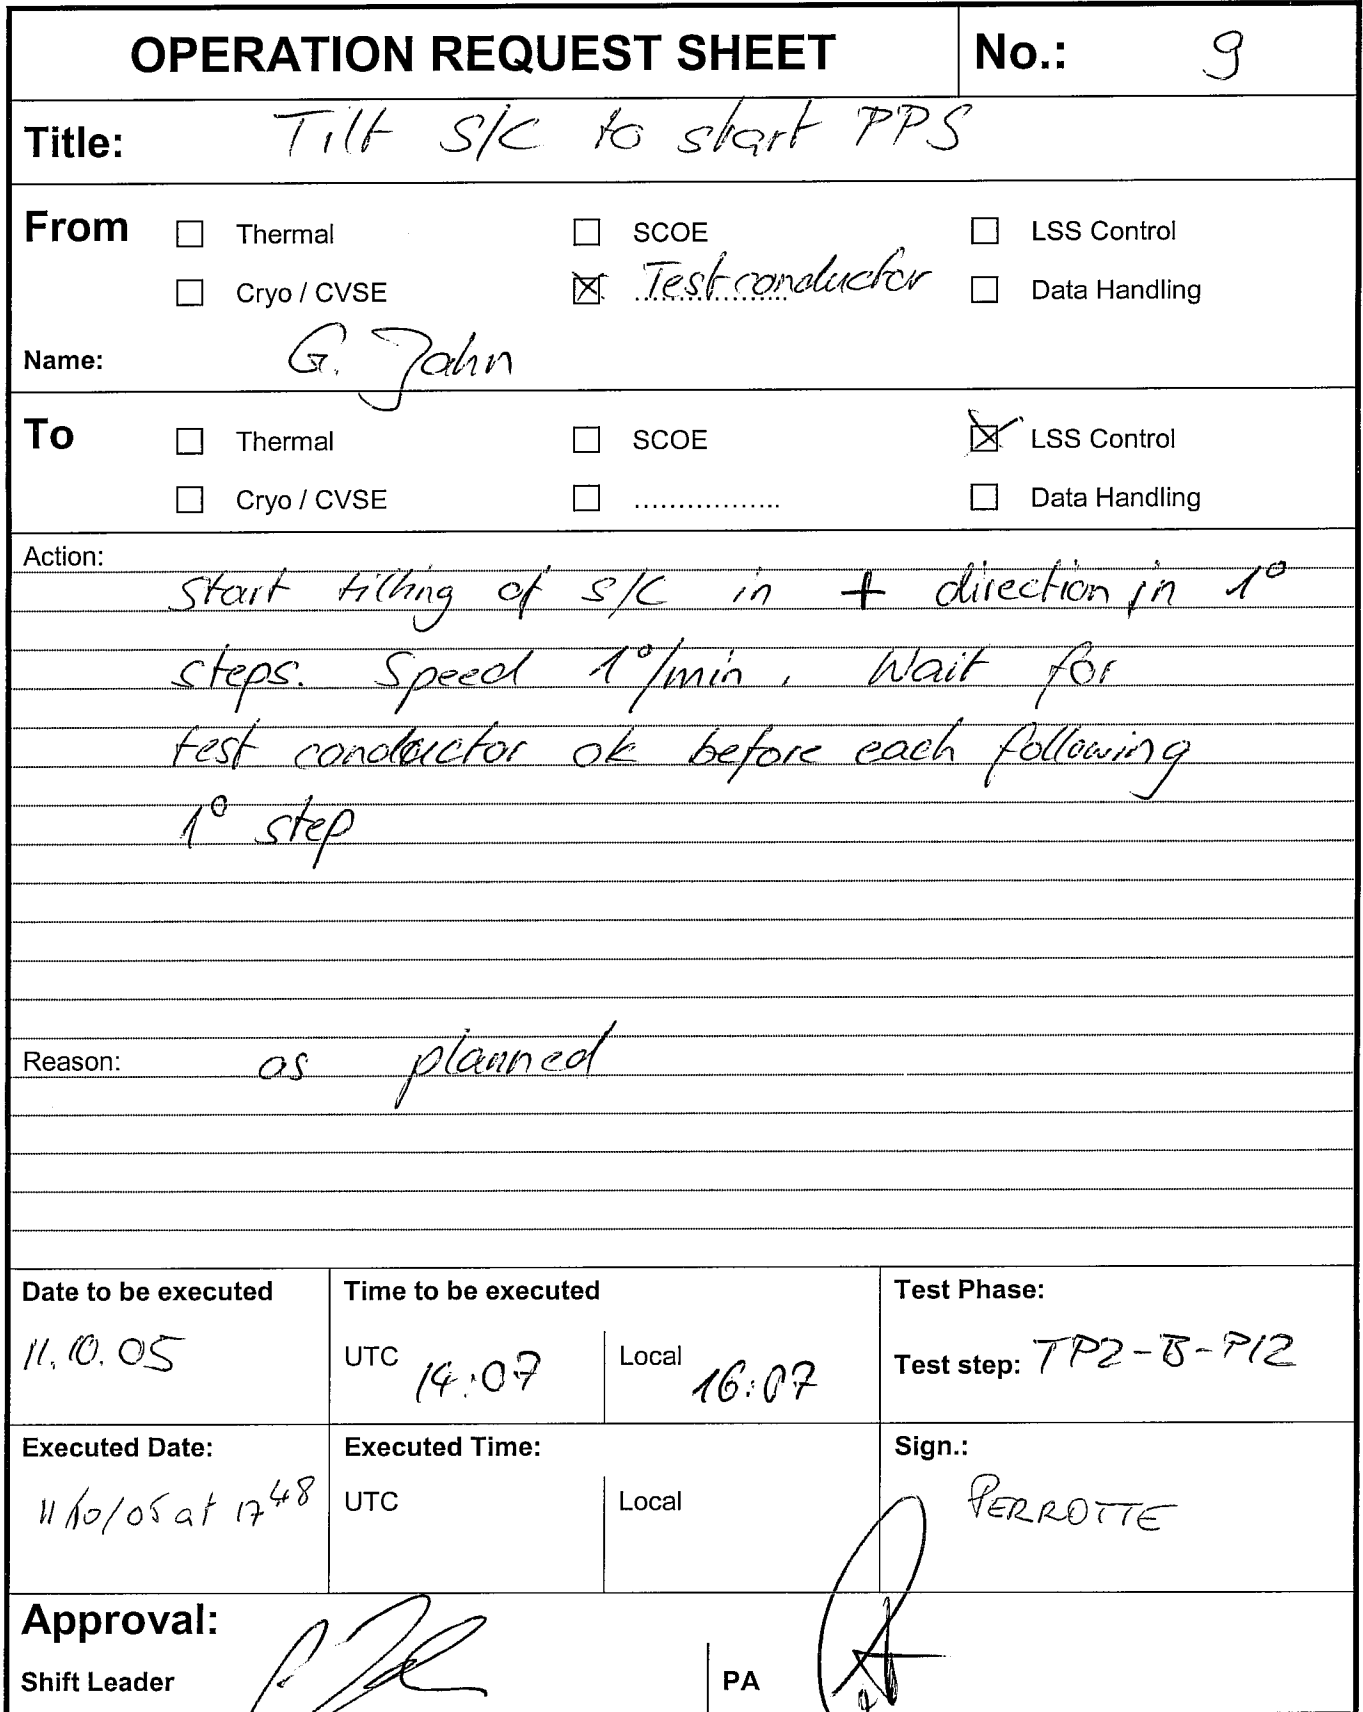 OPERATION REQUEST SHEET No.: 9
Title: Tilt S/C to start PPS
From ☐ Thermal ☐ SCOE ☐ LSS Control
☐ Cryo / CVSE ☒ Testconductor ☐ Data Handling
Name: G. Jahn
To ☐ Thermal ☐ SCOE ☒ LSS Control
☐ Cryo / CVSE ☐ ................. ☐ Data Handling
Action:
Start tilting of S/C in + direction in 1°
steps. Speed 1°/min. Wait for
test conductor ok before each following
1° step
Reason: as planned
Date to be executed Time to be executed Test Phase:
11.10.05 UTC 14:07 Local 16:07 Test step: TP2-B-P12
Executed Date: Executed Time: Sign.:
11/10/05 at 17 48 UTC Local PERROTTE
Approval:
Shift Leader PA